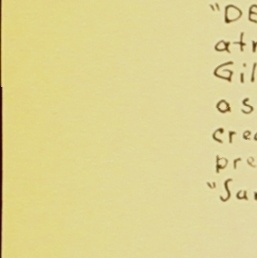 "DE
atr
Gil
as
crea
pre
"Sar